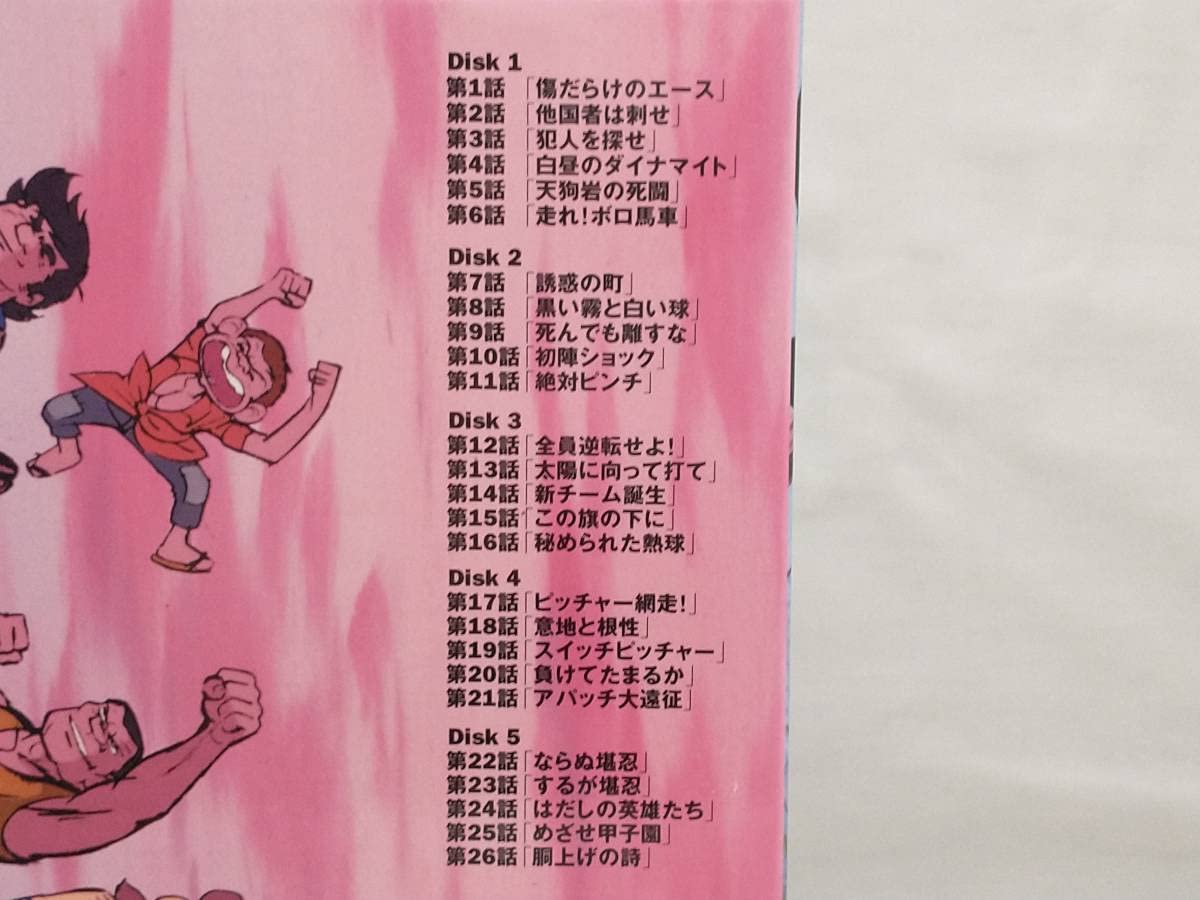 Disk 1
第1話 「傷だらけのエース」
第2話 「他国者は刺せ」
第3話 「犯人を探せ」
第4話 「白昼のダイナマイト」
第5話 「天狗岩の死闘」
第6話 「走れ!ボロ馬車」
Disk 2
第7話 「誘惑の町」
第8話 「黒い霧と白い球」
第9話 「死んでも離すな」
第10話「初陣ショック」
第11話「絶対ピンチ」
Disk 3
第12話「全員逆転せよ!」
第13話「太陽に向って打て」
第14話「新チーム誕生」
第15話「この旗の下に」
第16話「秘められた熱球」
Disk 4
第17話「ピッチャー網走!」
第18話「意地と根性」
第19話「スイッチピッチャー」
第20話「負けてたまるか」
第21話「アパッチ大遠征」
Disk 5
第22話「ならぬ堪忍」
第23話「するが堪忍」
第24話「はだしの英雄たち」
第25話「めざせ甲子園」
第26話「胴上げの詩」